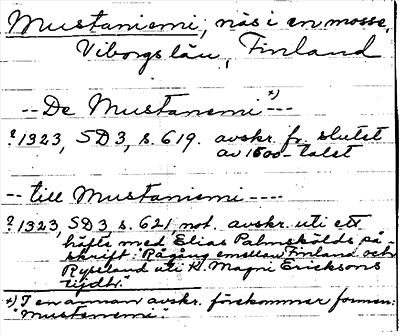 Mustaniemi, näs i en mosse,
Viborgs län, Finland
--De Mustanemi*)---
?1323, SD3, s. 619. avskr. fr. slutet
av 1500-talet
--till Mustaniemi----
?1323, SD3, s. 621, not. avskr. uti ett
häfte med Elias Palmskölds på-
skrift: Rågång emellan Finland och
Ryssland uti K. Magni Ericksons
tijdh".
*) I en annan avskr. förekommer formen:
"Mustenemi".